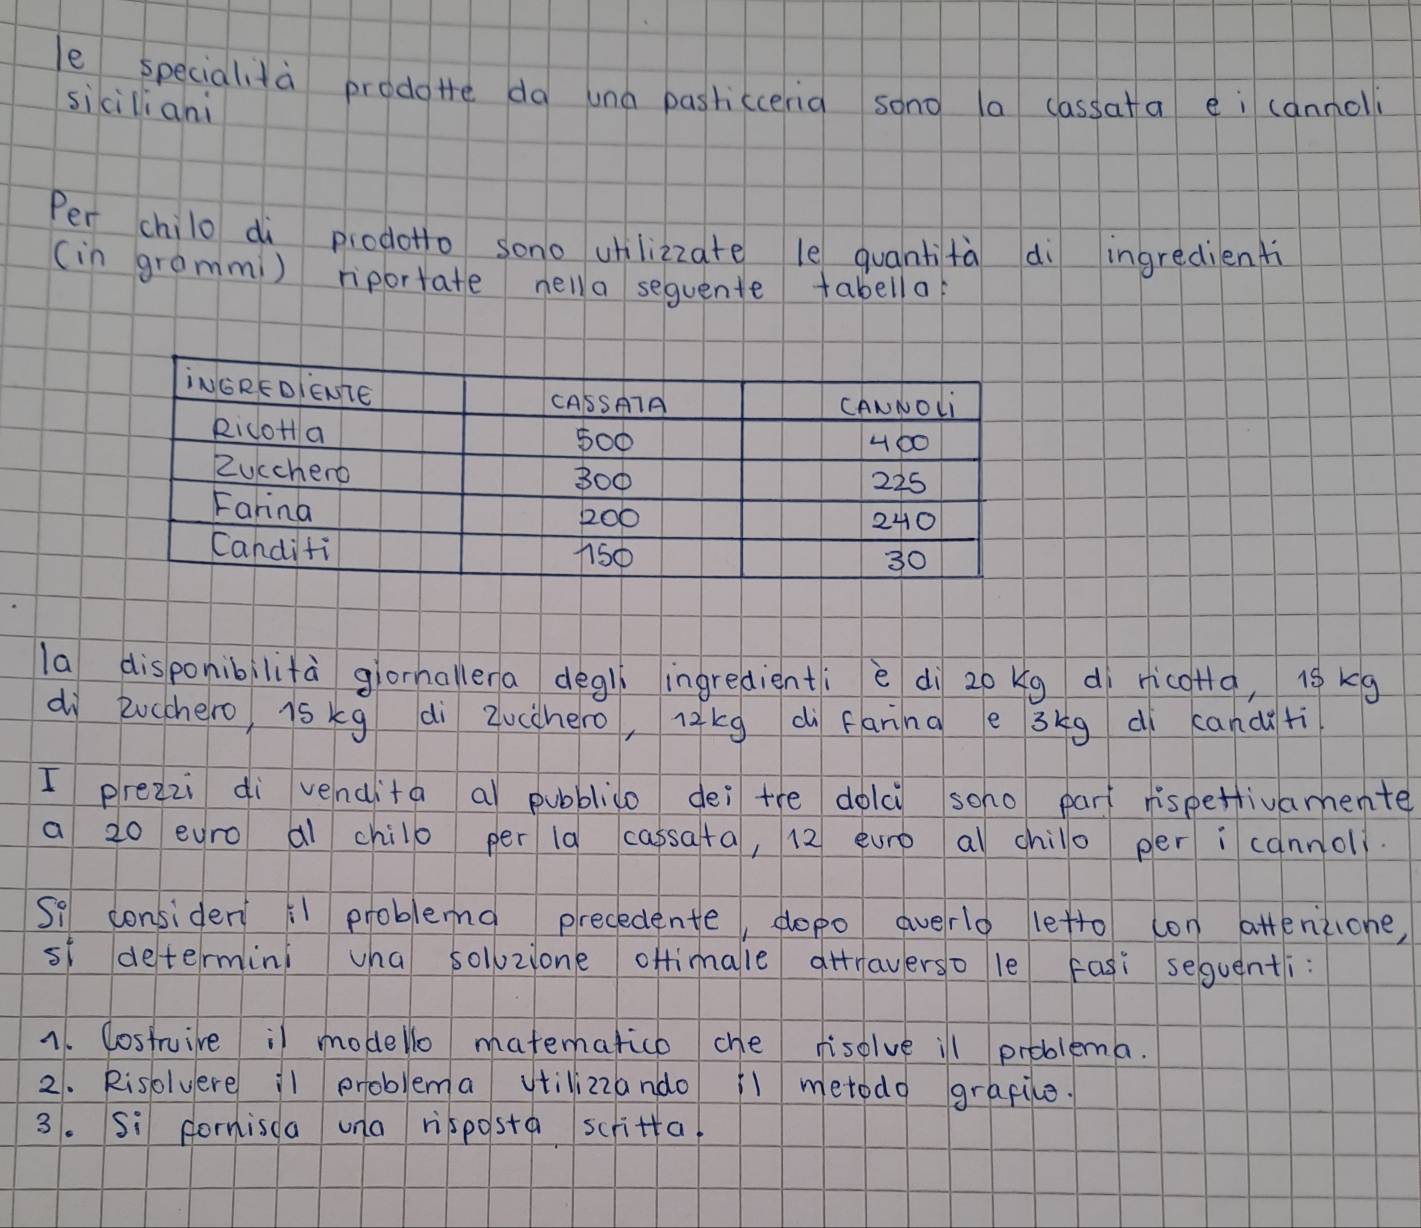 le specialità prodotte da una pasticceria sono la cassata e i cannoli
siciliani
Per chilo di prodotto sono utilizzate le quantità di ingredienti
(in grammi) riportate nella seguente tabella:
INGREDIENTE CASSATA CANNOLI
Ricotta 500 400
Zucchero 300 225
Farina 200 240
Canditi 150 30
la disponibilità giornaliera degli ingredienti è di 20 kg di ricotta, 15 kg
di zucchero, 15 kg di zucchero, 12kg di farina e 3kg di canditi.
I prezzi di vendita al pubblico dei tre dolci sono pari rispettivamente
a 20 euro al chilo per la cassata, 12 euro al chilo per i cannoli.
Si consideri il problema precedente, dopo averlo letto con attenzione,
si determini una soluzione ottimale attraverso le fasi seguenti:
1. Costruire il modello matematico che risolve il problema.
2. Risolvere il problema utilizzando il metodo grafico.
3. Si fornisca una risposta scritta.